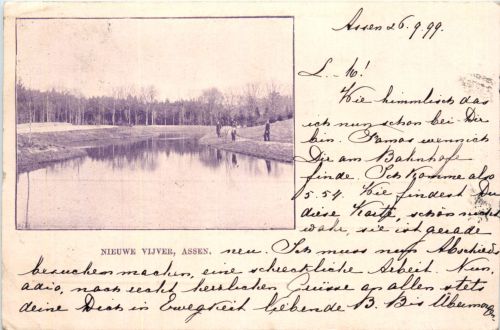 Assen 26.9.99.
L. M!
Wie himmlisch das
ich nun schon bei Dir
bin. Famos wenn ich
Die am Bahnhofe
finde. Ich komme also
5.54. Wie findest Du
diese Karte, schön nicht
wahr, sie ist gerade
NIEUWE VIJVER, ASSEN.
neu. Ich muss nun Abschieds
besuchen machen, eine schreckliche Arbeit. Nun,
adio, noch recht herzlichen Grüsse an allen stets
deine Dich in Ewegkeit liebende B. Bis